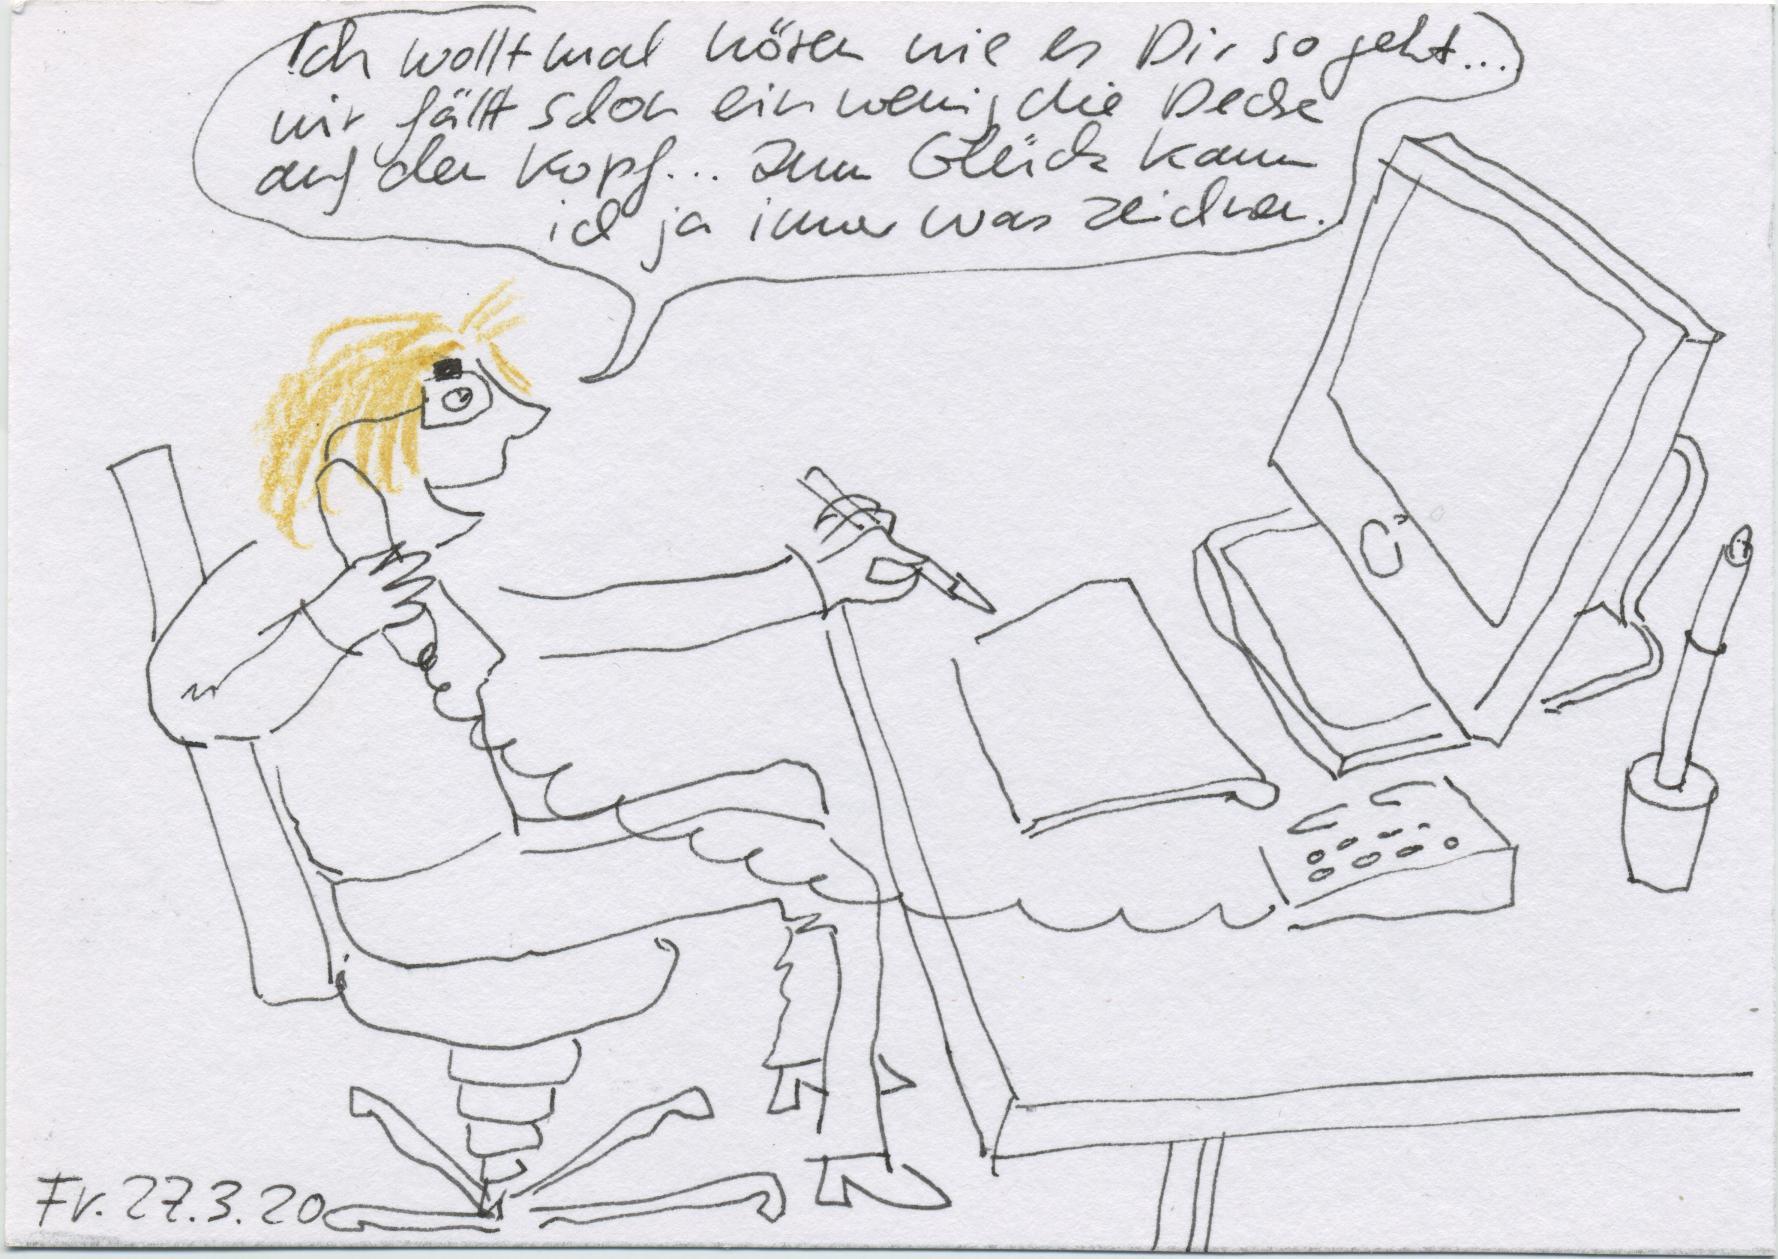 Ich wollt mal hören wie es Dir so geht...
mir fällt schon ein wenig die Decke
auf den Kopf... zum Glück kann
ich ja immer was zeichnen.
Fr. 27.3.20